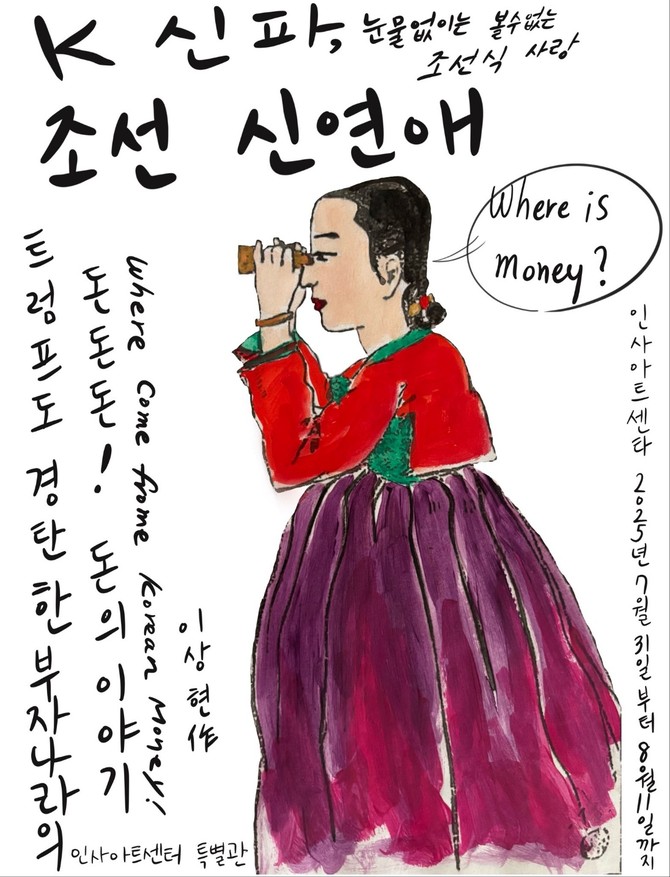 K 신파, 눈물없이는 볼수없는
조선식 사랑
조선 신연애
Where is
money?
트럼프도 경탄한 부자나라의
돈돈돈! 돈의 이야기
Where Come frome Korean Money!
이상현作
인사아트센타 2025년 7월 31일 부터 8월 11일 까지
인사아트센터 특별관